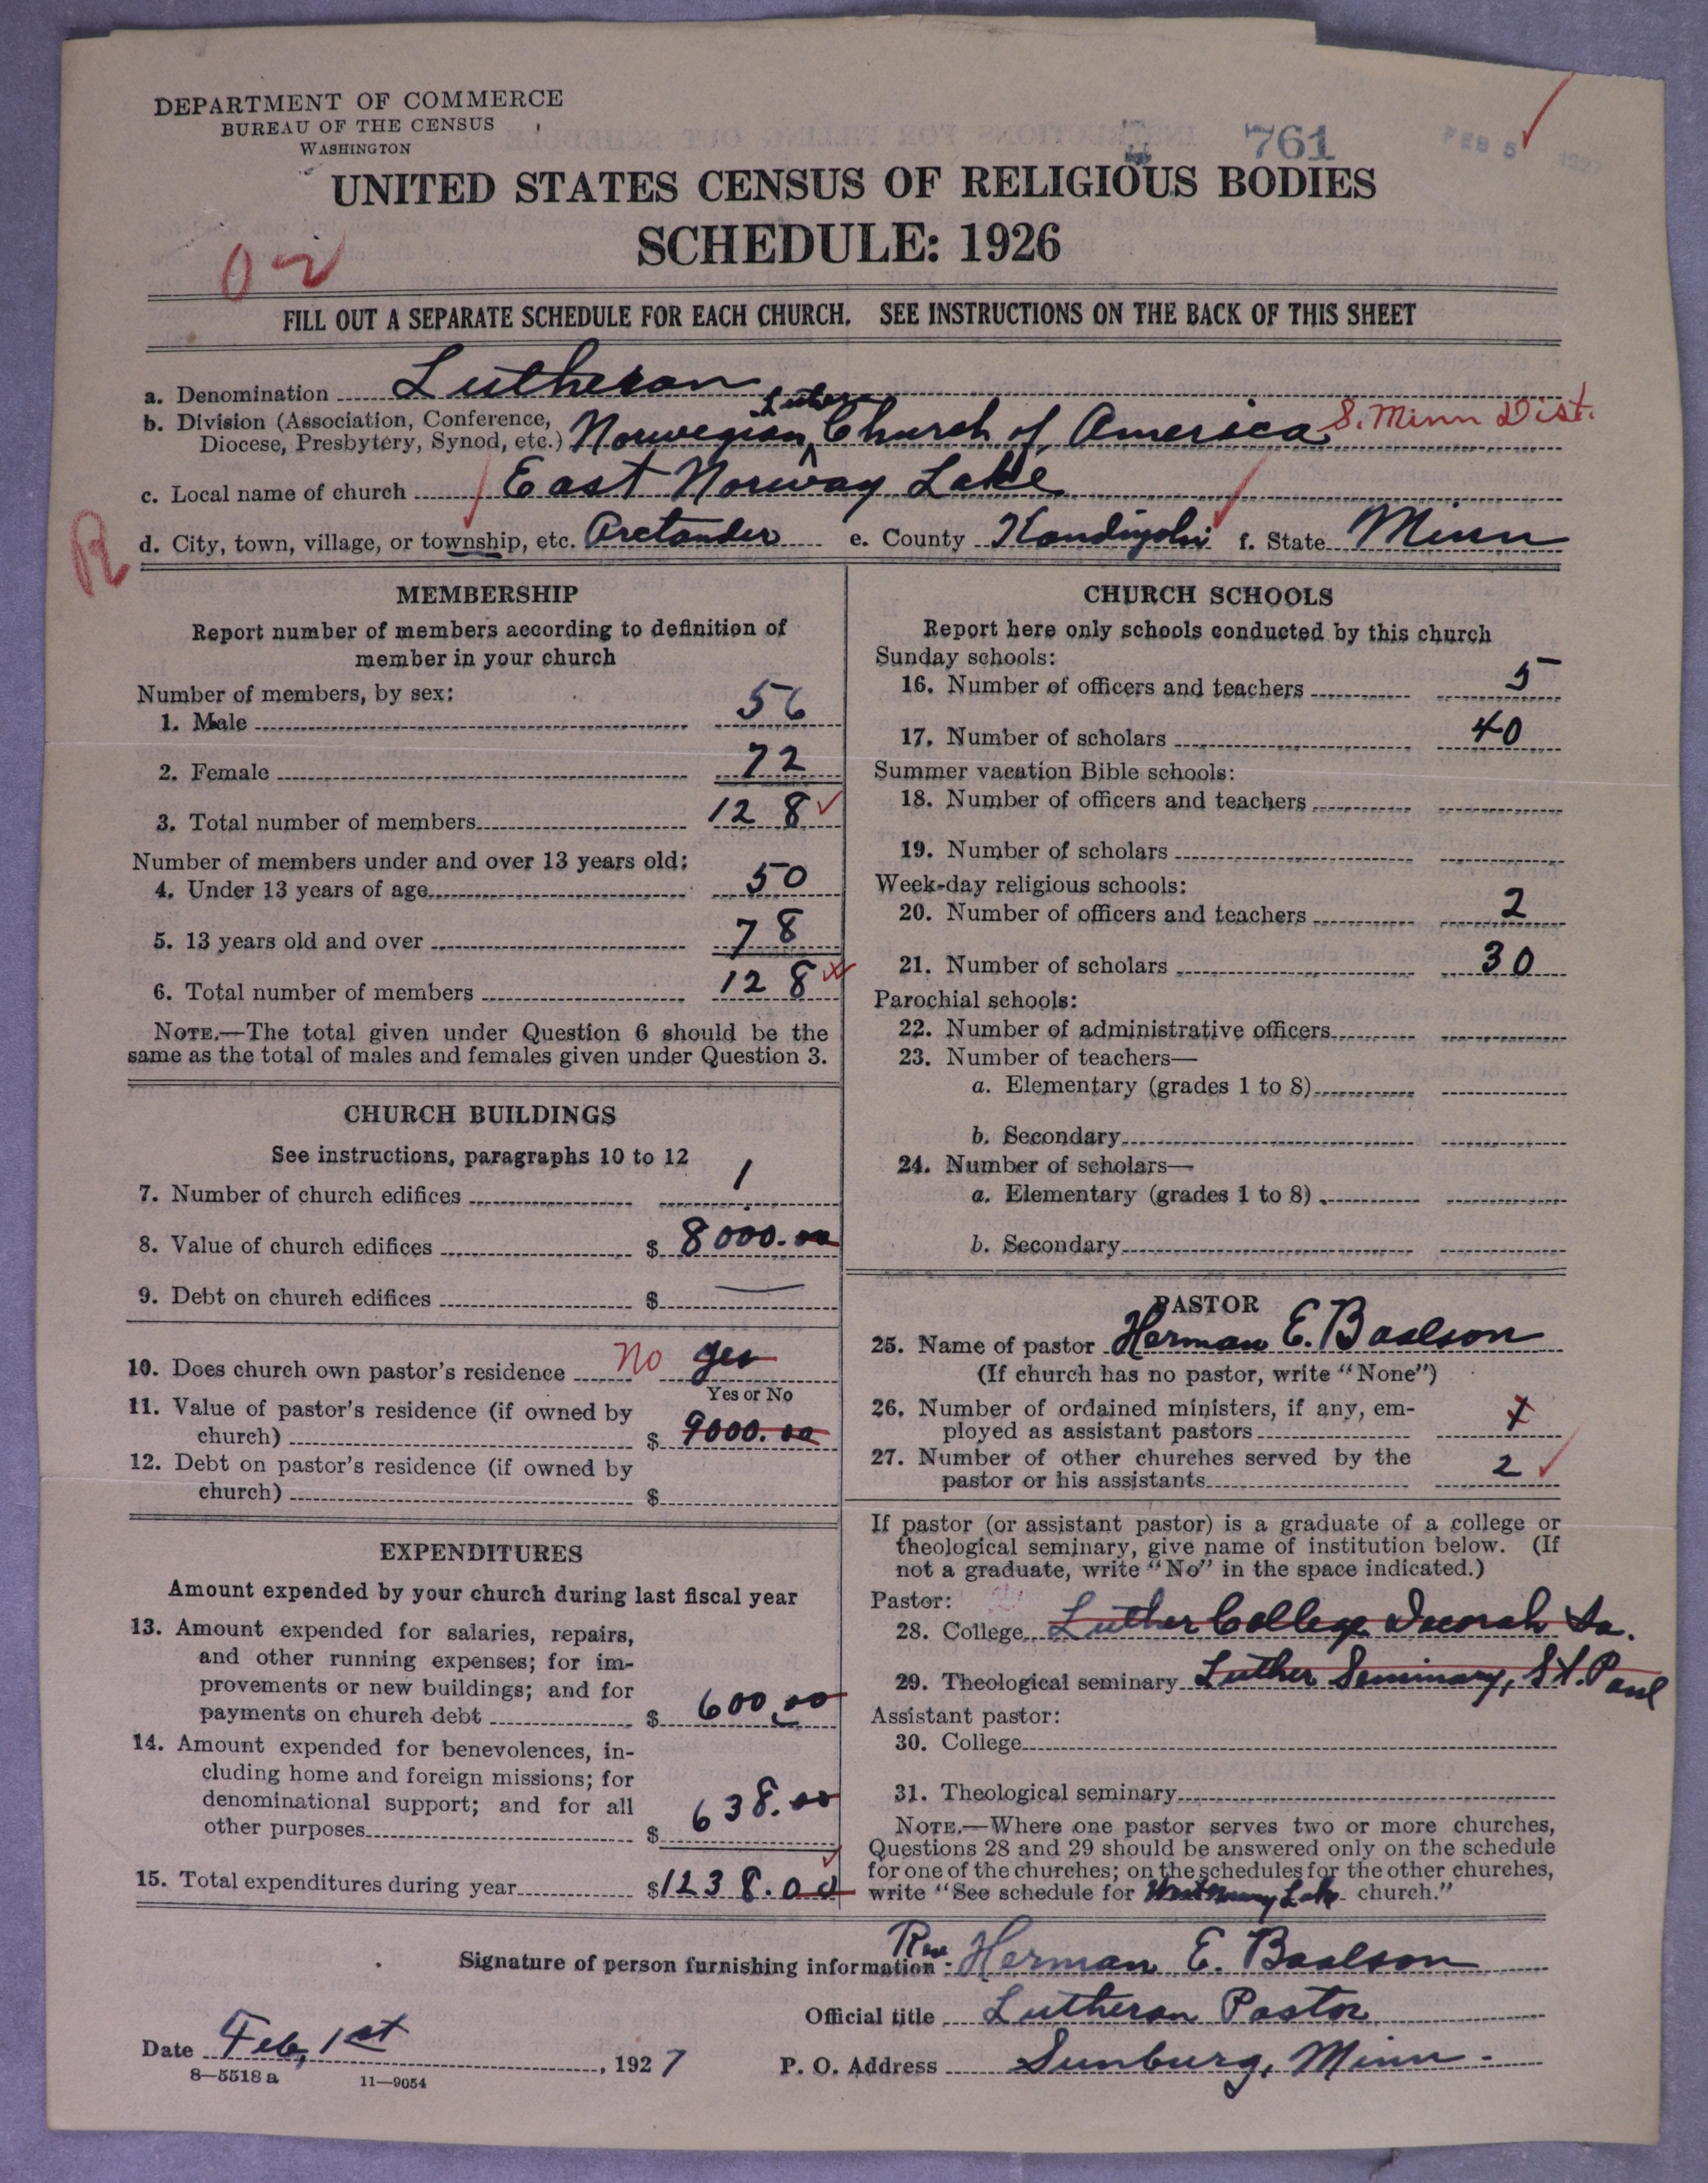 DEPARTMENT OF COMMERCE
BUREAU OF THE CENSUS
WASHINGTON
761
FEB 5 1927
UNITED STATES CENSUS OF RELIGIOUS BODIES
SCHEDULE: 1926
02
FILL OUT A SEPARATE SCHEDULE FOR EACH CHURCH. SEE INSTRUCTIONS ON THE BACK OF THIS SHEET
a. Denomination Lutheran
b. Division (Association, Conference, Diocese, Presbytery, Synod, etc.) Norwegian Luther Church of America S. Minn Dist.
c. Local name of church East Norway Lake
R
d. City, town, village, or township, etc. Arctander e. County Kandiyohi f. State Minn
MEMBERSHIP
Report number of members according to definition of
member in your church
Number of members, by sex:
1. Male 56
2. Female 72
3. Total number of members 128
Number of members under and over 13 years old:
4. Under 13 years of age 50
5. 13 years old and over 78
6. Total number of members 128
NOTE.—The total given under Question 6 should be the
same as the total of males and females given under Question 3.
CHURCH BUILDINGS
See instructions, paragraphs 10 to 12
7. Number of church edifices 1
8. Value of church edifices $ 8000.00
9. Debt on church edifices $ —
10. Does church own pastor's residence No yes
Yes or No
11. Value of pastor's residence (if owned by
church) $ 9000.00
12. Debt on pastor's residence (if owned by
church) $
EXPENDITURES
Amount expended by your church during last fiscal year
13. Amount expended for salaries, repairs,
and other running expenses; for im-
provements or new buildings; and for
payments on church debt $ 600.00
14. Amount expended for benevolences, in-
cluding home and foreign missions; for
denominational support; and for all
other purposes $ 638.00
15. Total expenditures during year $1238.00
CHURCH SCHOOLS
Report here only schools conducted by this church
Sunday schools:
16. Number of officers and teachers 5
17. Number of scholars 40
Summer vacation Bible schools:
18. Number of officers and teachers
19. Number of scholars
Week-day religious schools:
20. Number of officers and teachers 2
21. Number of scholars 30
Parochial schools:
22. Number of administrative officers
23. Number of teachers—
a. Elementary (grades 1 to 8)
b. Secondary
24. Number of scholars—
a. Elementary (grades 1 to 8)
b. Secondary
PASTOR
25. Name of pastor Herman E. Baalson
(If church has no pastor, write "None")
26. Number of ordained ministers, if any, em-
ployed as assistant pastors
27. Number of other churches served by the
pastor or his assistants 2
If pastor (or assistant pastor) is a graduate of a college or
theological seminary, give name of institution below. (If
not a graduate, write "No" in the space indicated.)
Pastor:
28. College Luther College Decorah Ia.
29. Theological seminary Luther Seminary, St. Paul
Assistant pastor:
30. College
31. Theological seminary
NOTE.—Where one pastor serves two or more churches,
Questions 28 and 29 should be answered only on the schedule
for one of the churches; on the schedules for the other churches,
write "See schedule for West Norway Lake church."
Signature of person furnishing information: Rev Herman E. Baalson
Official title Lutheran Pastor
Date Feb, 1st, 1927
P. O. Address Sunburg, Minn.
8—5518 a
11—9054